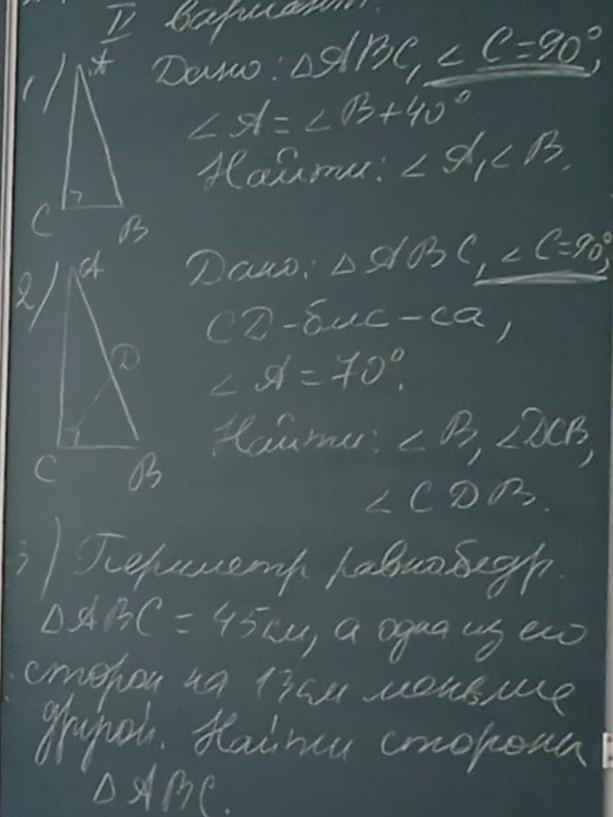 II вариант.
1) A
Дано: △ABC, ∠C=90°,
∠A=∠B+40°
Найти: ∠A, ∠B.
C B
2) A
Дано: △ABC, ∠C=90°,
CD-бис-са,
D
∠A=70°.
Найти: ∠B, ∠DCB,
C B
∠CDB.
3) Периметр равнобедр.
△ABC = 45см, а одна из его
сторон на 13см меньше
другой. Найти стороны
△ABC.